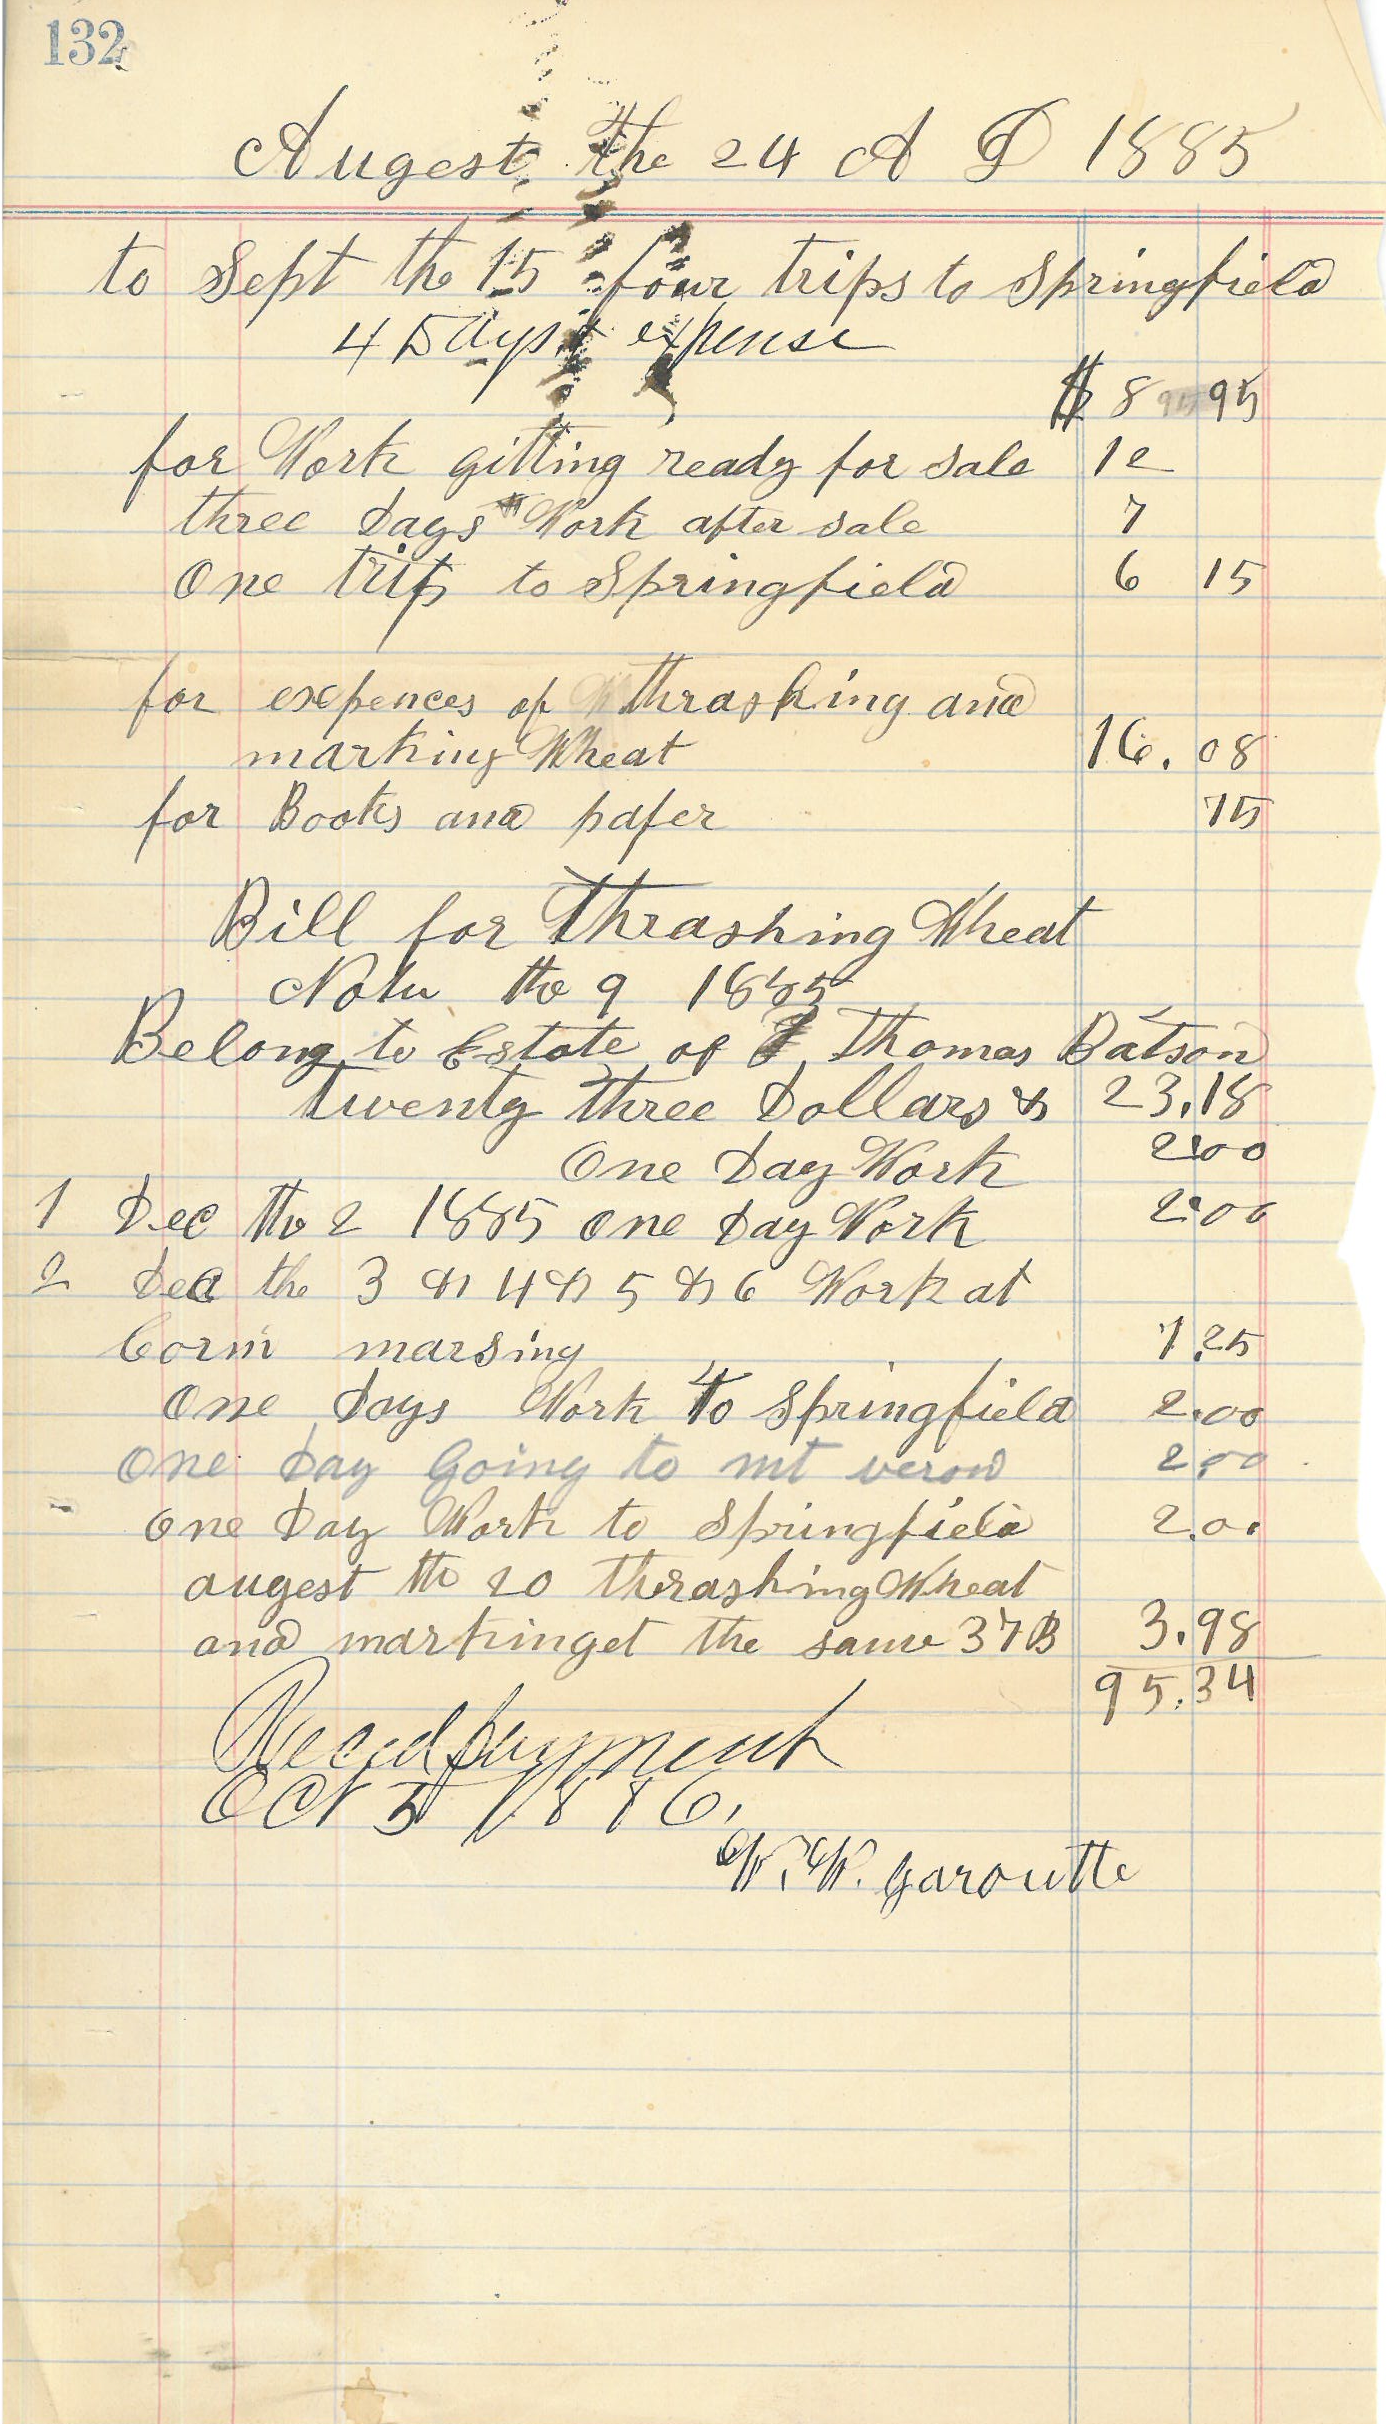 132
Augest the 24 A D 1885
to Sept the 15 four trips to Springfield
4 Days expense
$ 8 95
for Work gitting ready for sale 12
three days Work after sale 7
One trip to Springfield 6 15
for exepences of thrashing and
marking Wheat 16. 08
for Books and paper 75
Bill for Thrashing Wheat
Nov the 9 1885
Belong to Estate of Thomas Batson
twenty three Dollars & 23.18
One Day Work 2.00
1 Dec the 2 1885 one Day Work 2.00
2 Dec the 3 & 4 & 5 & 6 Work at
Corn marsing 7.25
One days Work to Springfield 2.00
One Day Going to mt veron 2.00
One Day Work to Springfield 2.00
augest the 20 thrashing Wheat
and markinget the same 37 B 3.98
95.34
Recd payment
Oct 5 1886,
W. W. Garoutte